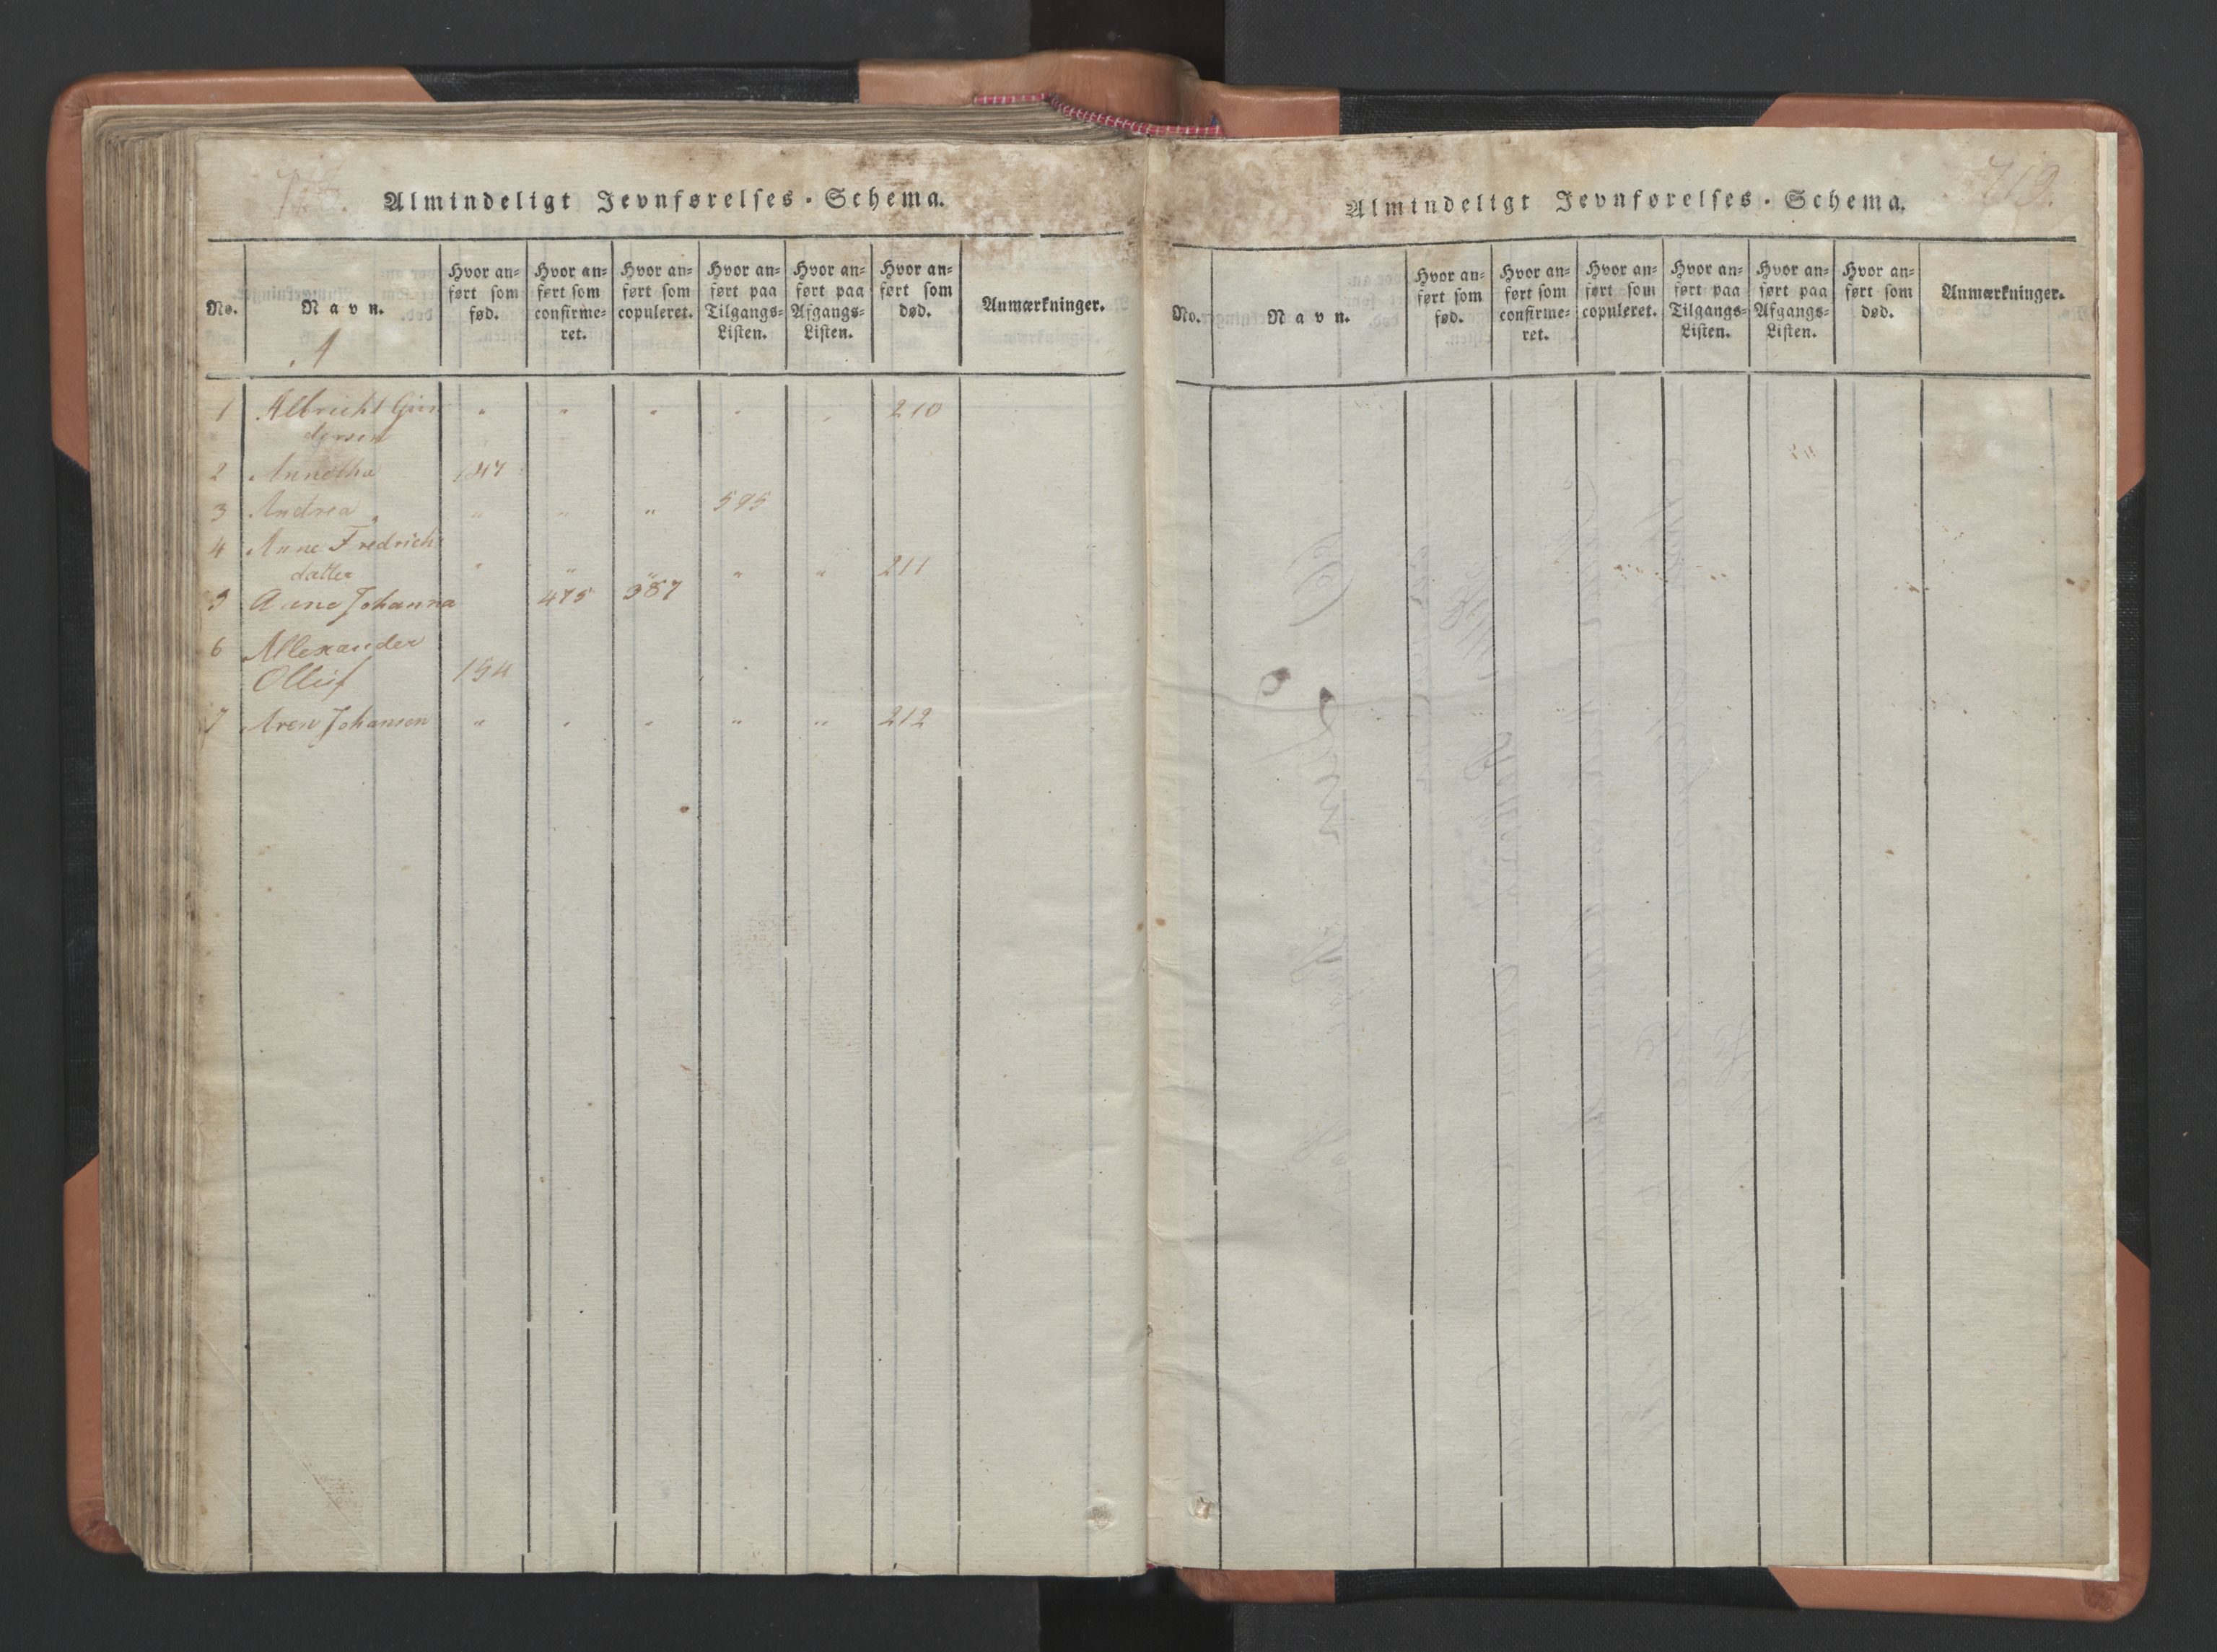 Almindeligt Jevnførelses-Schema.
No.
Navn.
Hvor an-
ført som
fød.
Hvor an-
ført som
confirme-
ret.
Hvor an-
ført som
copuleret.
Hvor an-
ført paa
Tilgangs-
Listen.
Hvor an-
ført paa
Afgangs-
Listen.
Hvor an-
ført som
død.
Anmærkninger.
A
1 Albricht Gun " " " " " 210
dersen
2 Annetha 147
3 Andrea " " " 595
4 Anne Fredrichs
datter " " " " " 211
5 Anne Johanna 475 387
6 Allexander
Olluf 154
7 Aren Johansen " " " " " 212
719.
Almindeligt Jevnførelses-Schema.
No.
Navn.
Hvor an-
ført som
fød.
Hvor an-
ført som
confirme-
ret.
Hvor an-
ført som
copuleret.
Hvor an-
ført paa
Tilgangs-
Listen.
Hvor an-
ført paa
Afgangs-
Listen.
Hvor an-
ført som
død.
Anmærkninger.